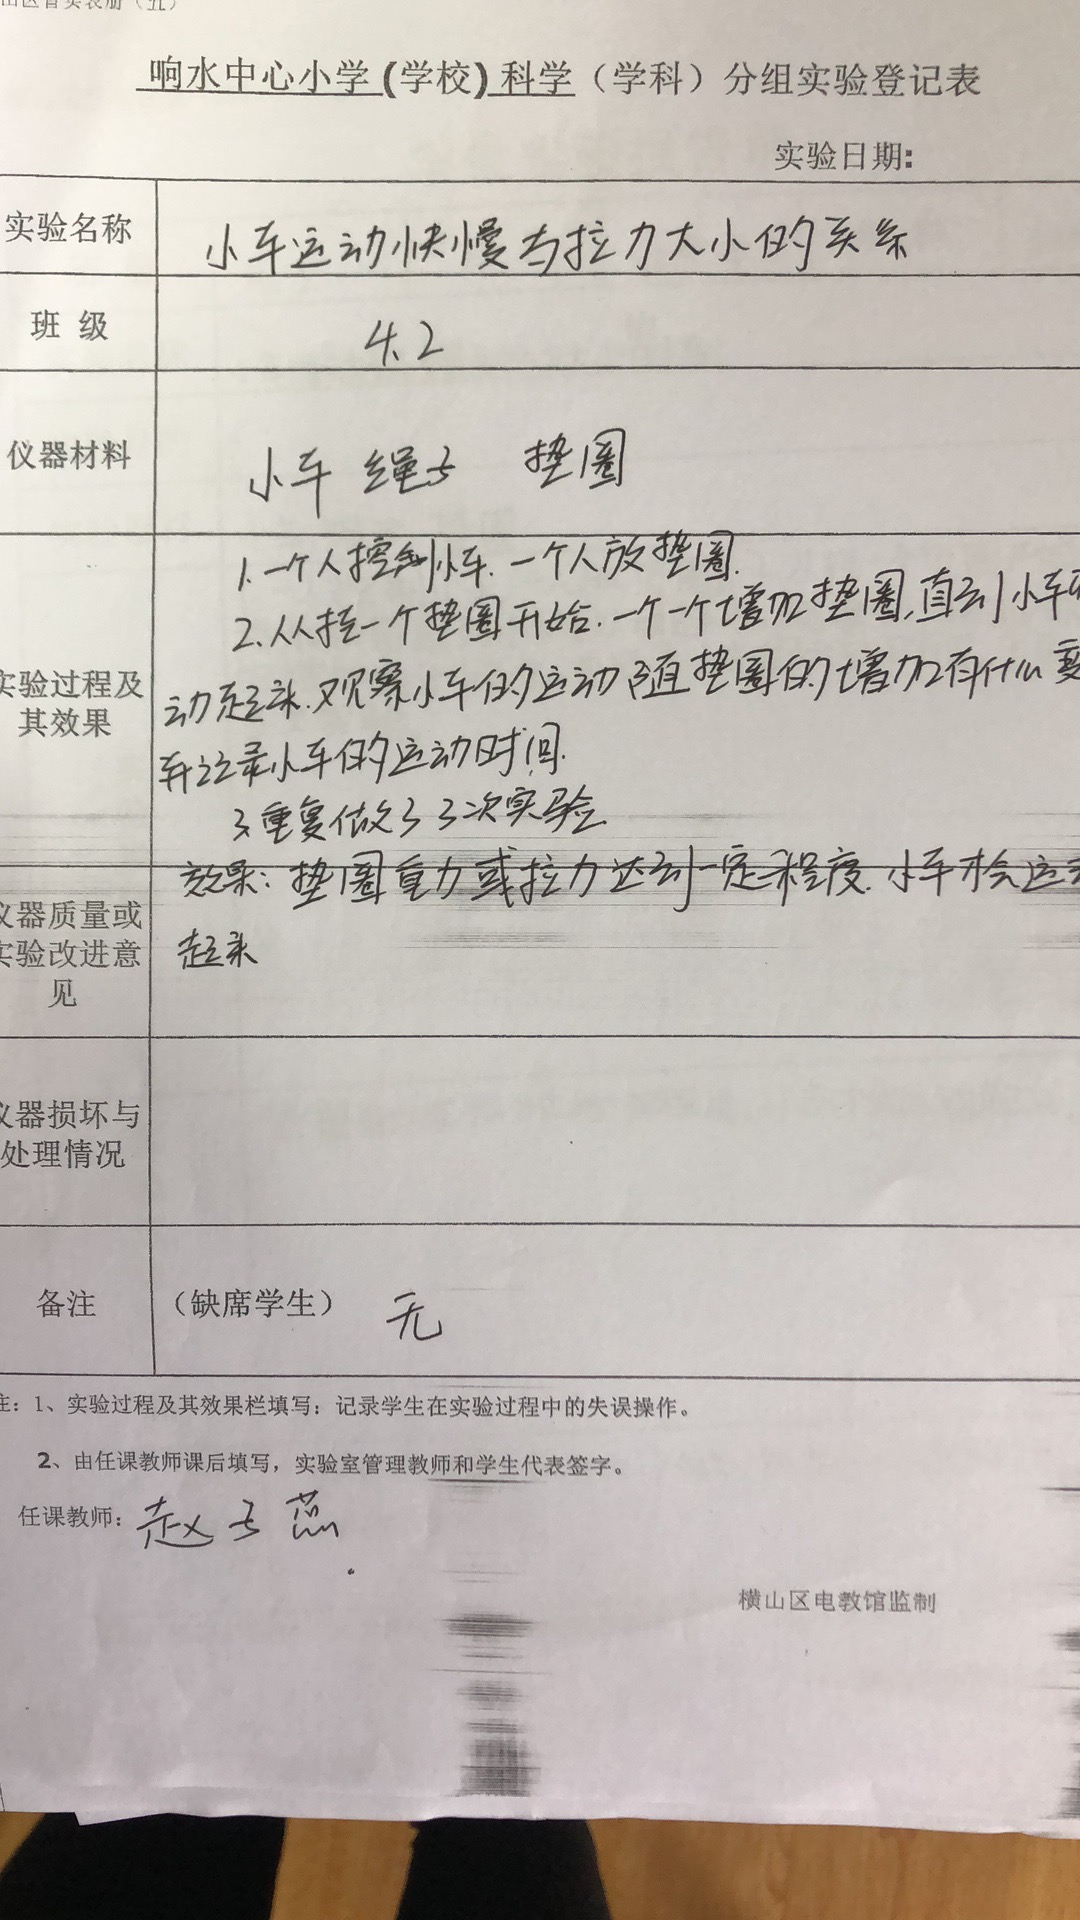 响水中心小学(学校)科学（学科）分组实验登记表
实验日期:
实验名称 小车运动快慢与拉力大小的关系
班 级 4.2
仪器材料 小车 绳子 垫圈
1.一个人控制小车.一个人放垫圈.
2.从挂一个垫圈开始.一个一个增加垫圈,直到小车
实验过程及
其效果
动起来.观察小车的运动随垫圈的增加有什么变
并记录小车的运动时间.
3.重复做了3次实验
效果：垫圈重力或拉力达到一定程度.小车才会运动
起来
仪器质量或
实验改进意
见
仪器损坏与
处理情况
备注 （缺席学生） 无
注：1、实验过程及其效果栏填写：记录学生在实验过程中的失误操作。
2、由任课教师课后填写，实验室管理教师和学生代表签字。
任课教师：赵子燕
横山区电教馆监制